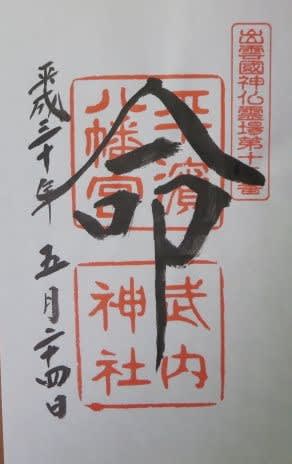 出雲國神仏霊場第十二番
命
平濱
八幡宮
武内
神社
平成三十年五月二十四日